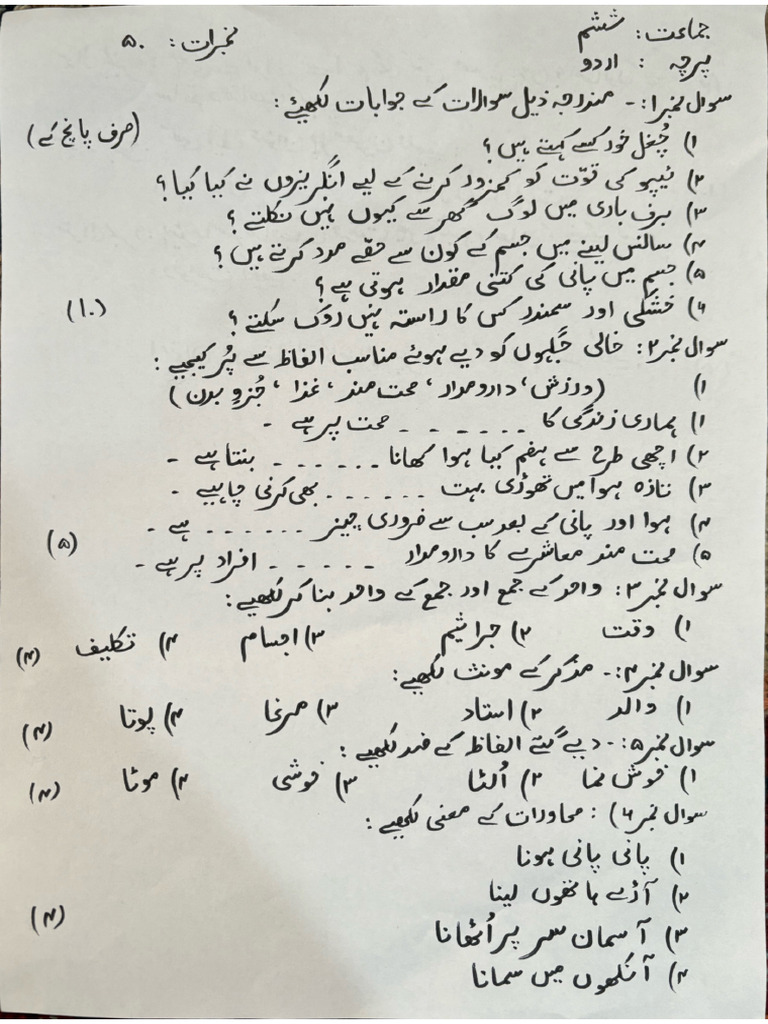 جماعت: ششم
نمبرات: ۵۰
پرچہ : اردو
سوال نمبر۱:- مندرجہ ذیل سوالات کے جوابات لکھیئے:
(صرف پانچ کے)
۱) چُغل خور کسے کہتے ہیں؟
۲) ٹیپو کی قوّت کو کمزور کرنے کے لیے انگریزوں نے کیا کیا؟
۳) برف باری میں لوگ گھر سے کیوں نہیں نکلتے؟
۴) سانس لینے میں جسم کے کون سے حصّے مدد کرتے ہیں؟
۵) جسم میں پانی کی کتنی مقدار ہوتی ہے؟
۶) خشکی اور سمندر کس کا راستہ نہیں روک سکتے؟ (۱۰)
سوال نمبر۲: خالی جگہوں کو دیے ہوئے مناسب الفاظ سے پُر کیجیے:
۱) (ورزش، دارومدار، صحت مند، غذا، جُزوِ بدن)
۱) ہماری زندگی کا ------ صحت پر ہے -
۲) اچھی طرح سے ہضم کیا ہوا کھانا ------ بنتا ہے -
۳) تازہ ہوا میں تھوڑی بہت ------ بھی کرنی چاہیے -
۴) ہوا اور پانی کے بعد سب سے ضروری چیز ------ ہے -
۵) صحت مند معاشرے کا دارومدار ------ افراد پر ہے - (۵)
سوال نمبر۳: واحد کے جمع اور جمع کے واحد بنا کر لکھیے:
۱) وقت ۲) جراثیم ۳) اجسام ۴) تکلیف (۴)
سوال نمبر۴:- مذکر کے مونث لکھیے:
۱) والد ۲) استاد ۳) مرغا ۴) پوتا (۴)
سوال نمبر۵:- دیے گئے الفاظ کے ضد لکھیے:
۱) خوش نما ۲) اُلٹا ۳) خوشی ۴) موٹا (۴)
سوال نمبر۶) : محاورات کے معنی لکھیے:
۱) پانی پانی ہونا
۲) آڑے ہاتھوں لینا
۳) آسمان سر پر اُٹھانا (۴)
۴) آنکھوں میں سمانا